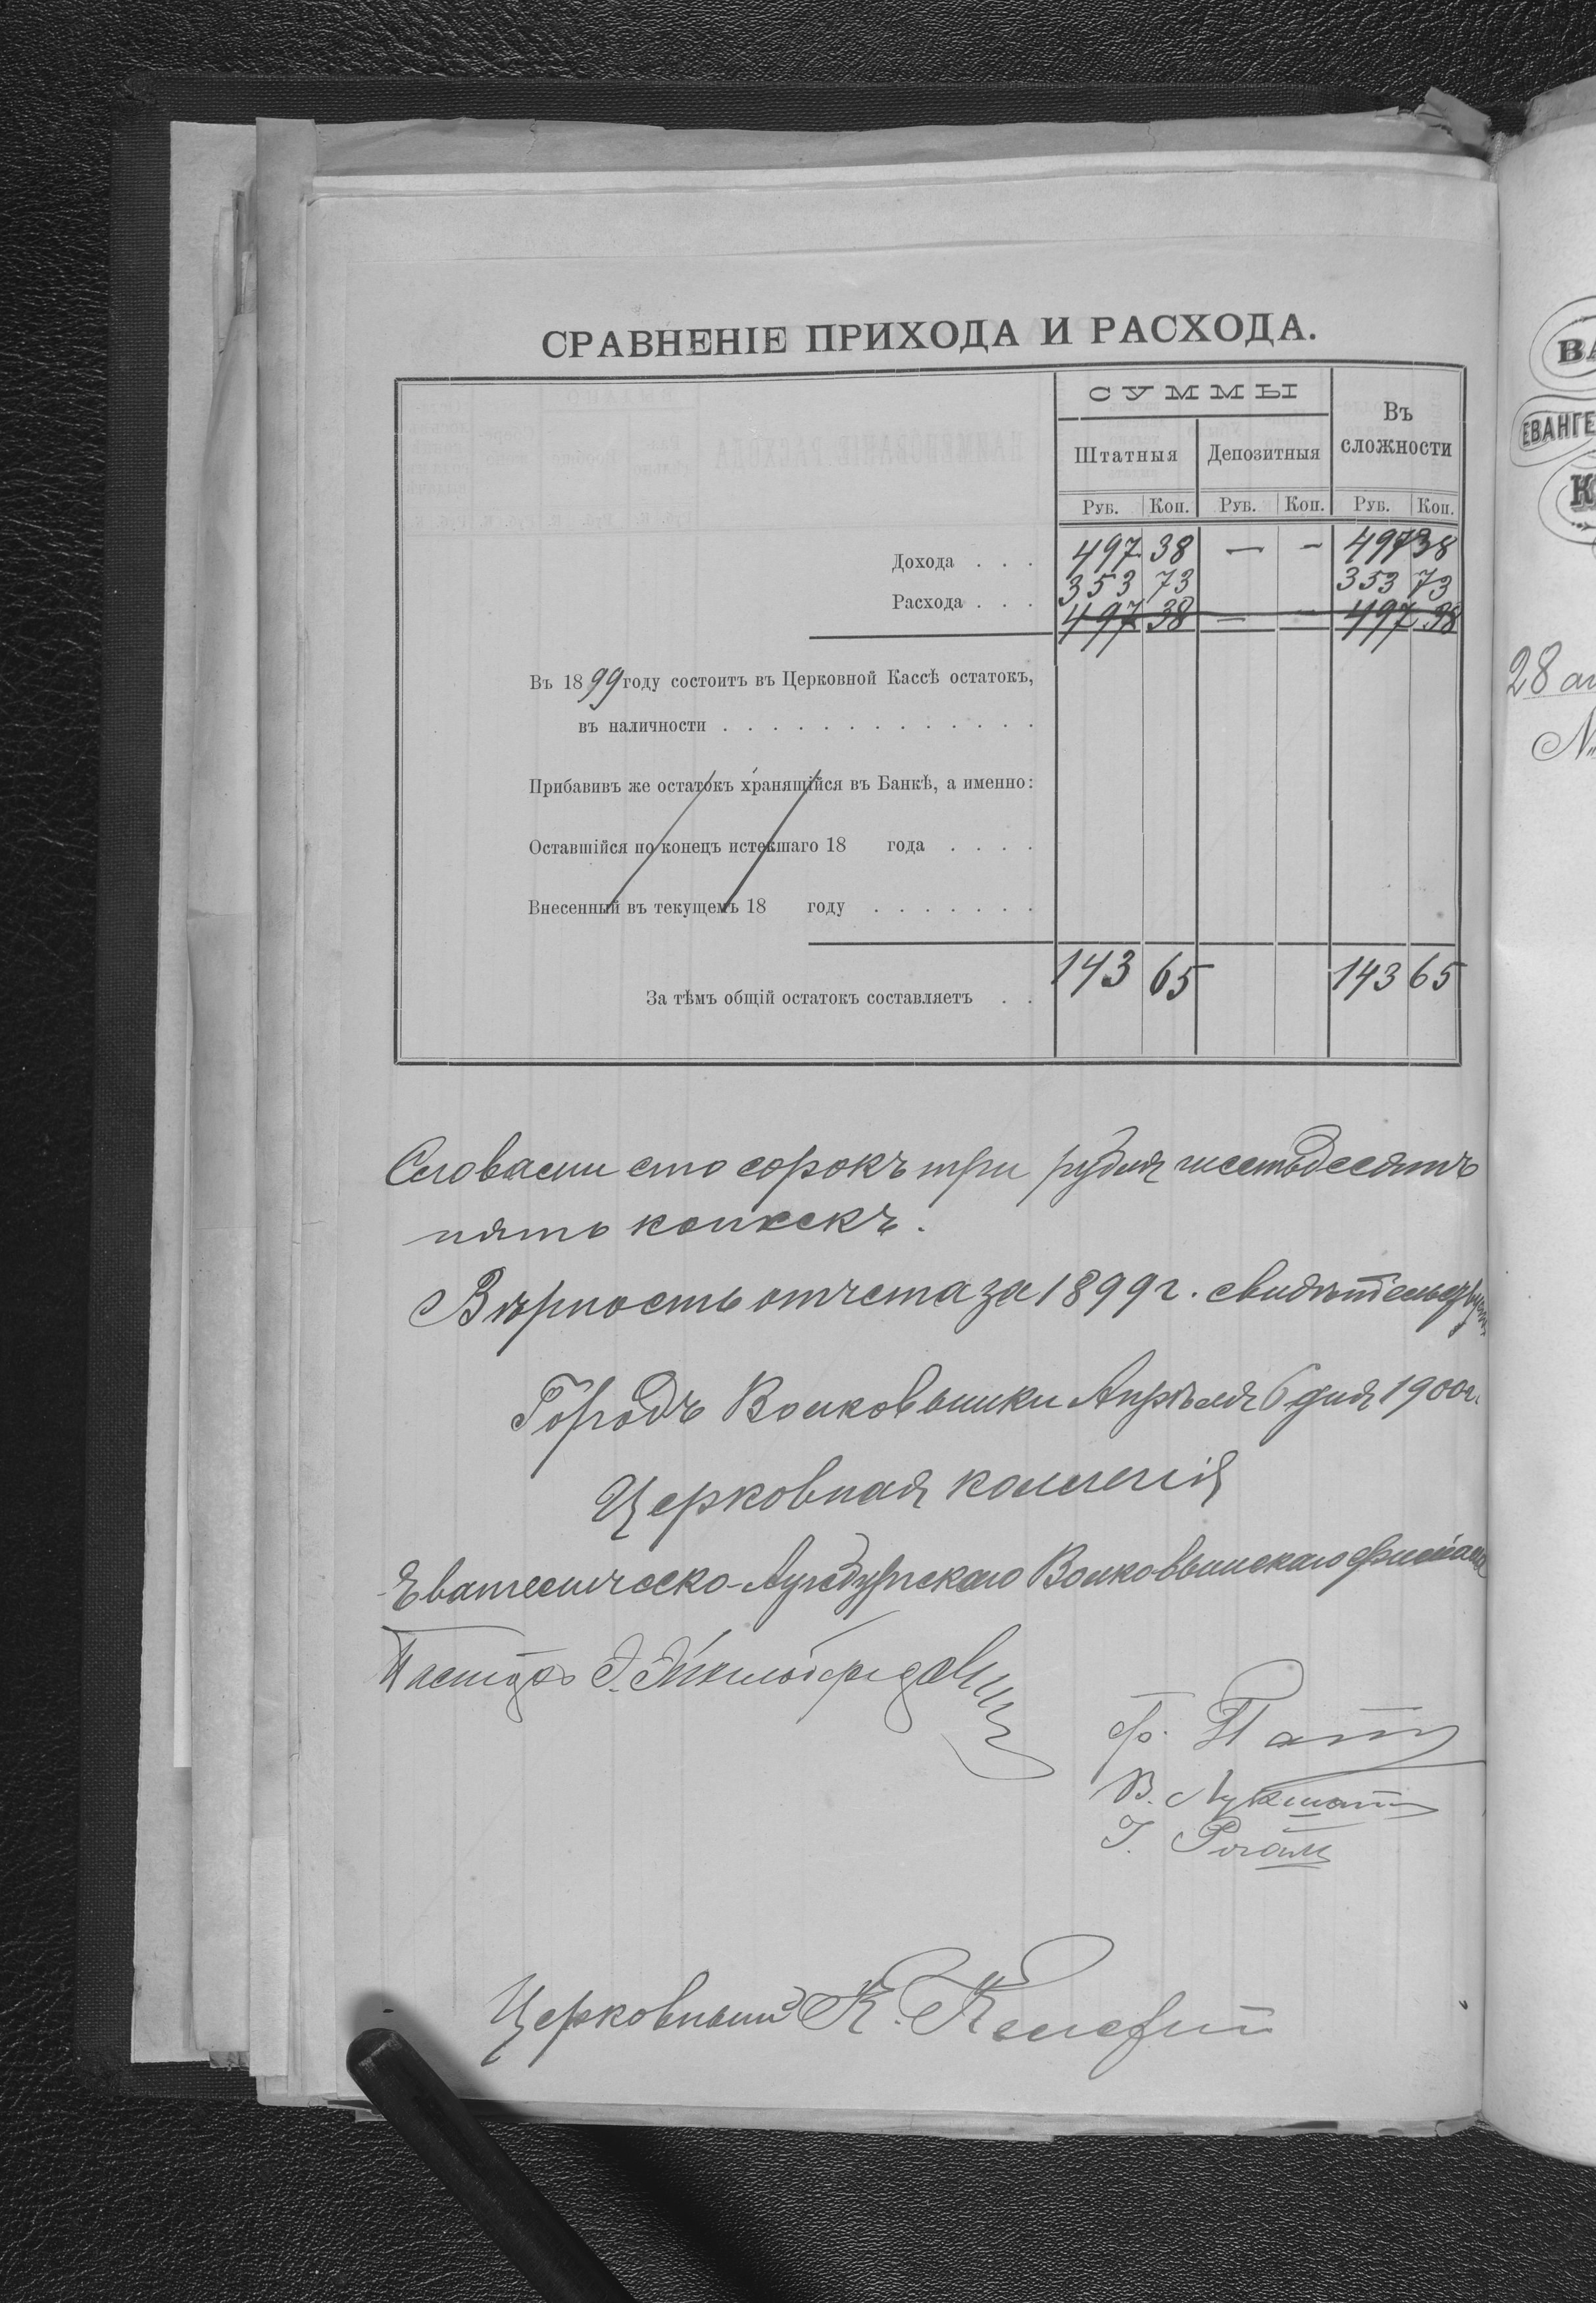 СРАВНЕНІЕ ПРИХОДА И РАСХОДА.
СУММЫ
Въ сложности
Штатныя
Депозитныя
Руб. Коп. Руб. Коп. Руб. Коп.
Дохода . . . 497 38 — — 497 38
353 73 353 73
Расхода . . . 497 38 — — 497 38
Въ 1899 году состоитъ въ Церковной Кассѣ остатокъ,
въ наличности . . . . . . . . . . . . .
Прибавивъ же остатокъ хранящійся въ Банкѣ, а именно:
Оставшійся по конецъ истекшаго 18 года . . . .
Внесенный въ текущемъ 18 году . . . . . . .
143 65 143 65
За тѣмъ общій остатокъ составляетъ . .
Словами сто сорокъ три рубля шестьдесятъ
пять копѣекъ.
Вѣрность отчета за 1899 г. свидѣтельствуетъ
Городъ Волковышки Апрѣля 6 дня 1900 г.
Церковная коллегія
Евангелическо-Аугсбургскаго Волковышскаго филіала
Пасторъ
Ф. Патц
В.
Г.
Церковный К.
ВА
ЕВАНГЕ
К
28 ап
№